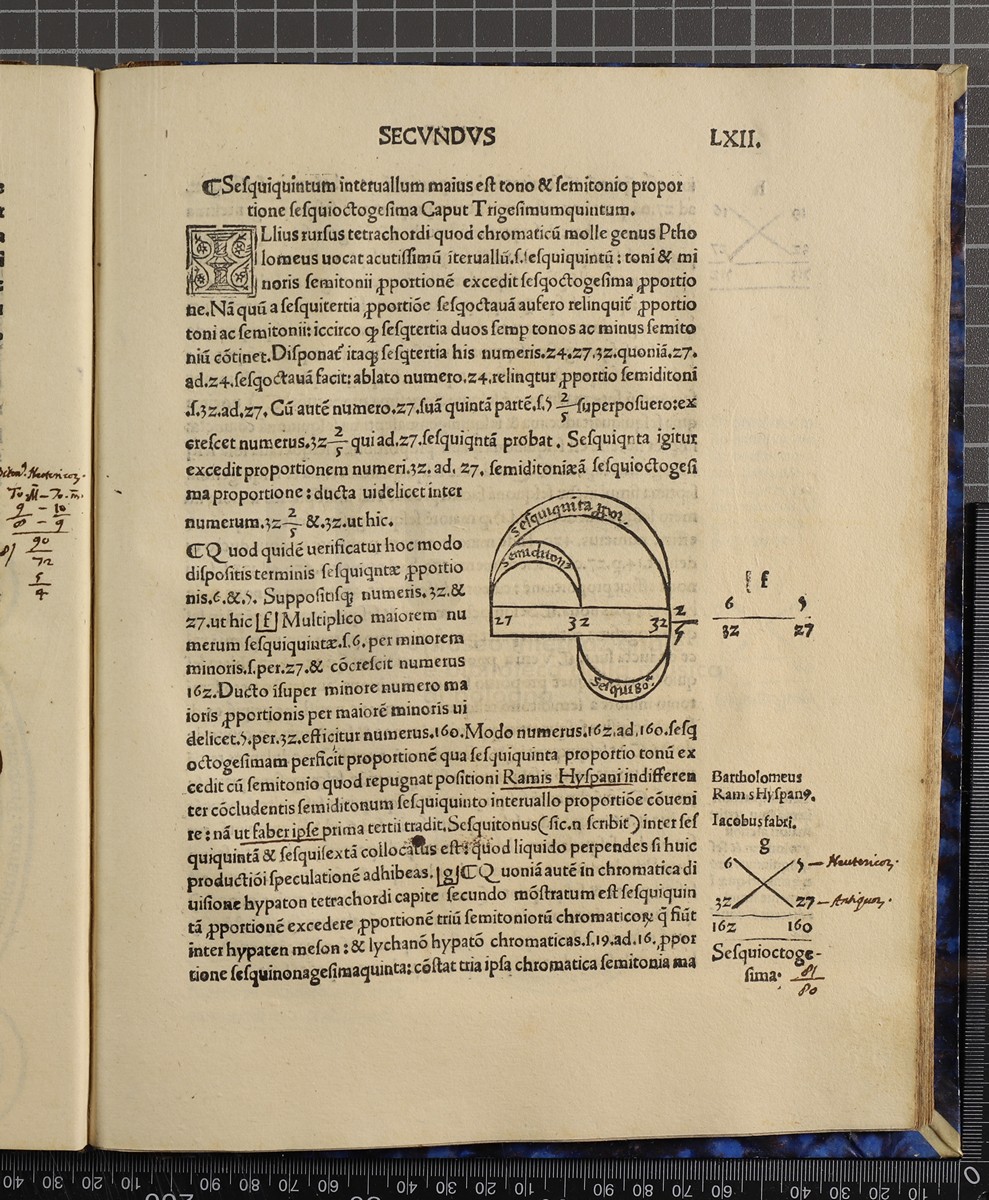 SECVNDVS
LXII.
⁋Seſquiquintum interuallum maius eſt tono & ſemitonio propor
tione ſeſquioctogeſima Caput Trigeſimumquintum.
ILlius rurſus tetrachordi quod chromaticū molle genus Ptho
lomeus uocat acutiſſimū īteruallū.ſ.ſeſquiquintū: toni & mi
noris ſemitonii ꝓportionē excedit ſeſqoctogeſima ꝓportio
ne.Nā quū a ſeſquitertia ꝓportiōe ſeſqoctauā aufero relinquit᷑ ꝓportio
toni ac ſemitonii: iccirco ꝙ ſeſqtertia duos ſemp tonos ac minus ſemito
niū cōtinet.Diſponat᷑ itaqꝫ ſeſqtertia his numeris.24.27.32.quoniā.27.
ad.24.ſeſqoctauā facit: ablato numero.24.relinqtur ꝓportio ſemiditoni
.ſ.32.ad.27. Cū autē numero.27.ſuā quintā partē.ſ.5 2/5 ſuperpoſuero:ex
creſcet numerus.32 2/5 qui ad.27.ſeſquiqntā probat. Seſquiqnta igitur
excedit proportionem numeri.32. ad. 27. ſemiditoniæā ſeſquioctogeſi
ma proportione: ducta uidelicet inter
numerum.32 2/5 &.32.ut hic.
⁋Quod quidē uerificatur hoc modo
diſpoſitis terminis ſeſquiqntæ ꝓportio
nis.6.&.5. Suppoſitiſqꝫ numeris.32.&
27.ut hic [f] Multiplico maiorem nu
merum ſeſquiquintæ.ſ.6.per minorem
minoris.ſ.per.27.& cōcreſcit numerus
162.Ducto īſuper minore numero ma
ioris ꝓportionis per maiorē minoris ui
delicet.5.per.32.efficitur numerus.160.Modo numerus.162.ad.160.ſeſq
octogeſimam perficit proportionē qua ſeſquiquinta proportio tonū ex
cedit cū ſemitonio quod repugnat poſitioni Ramis Hyſpani indifferen
ter cōcludentis ſemiditonum ſeſquiquinto interuallo proportiōe cōueni
re: nā ut faber ipſe prima tertii tradit.Seſquitonus(ſic.n ſcribit) inter ſeſ
quiquintā & ſeſquiſextā collocatus eſt: quod liquido perpendes ſi huic
productiōi ſpeculationē adhibeas. [g]⁋Quoniā autē in chromatica di
uiſione hypaton tetrachordi capite ſecundo mōſtratum eſt ſeſquiquin
tā ꝓportionē excedere ꝓportionē triū ſemitoniorū chromaticoꝝ q̄ ſiūt
inter hypaten meſon: & lychanō hypatō chromaticas.ſ.19.ad.16.ꝓpor
tione ſeſquinonageſimaquinta: cōſtat tria ipſa chromatica ſemitonia ma
Seſquiquīta ꝓpor.
Semiditonꝰ
27 32 32 2/5
Seſqui80ª.
[f
6 5
32 27
Bartholomeus
Ram s Hyſpanꝰ.
Iacobus fabri.
g
6 5 — Neutericoꝝ.
32 27 — Antiquoꝝ.
162 160
Seſquioctoge-
ſima. 81/80
Neutericoꝝ.
9 — 10
8 — 9
90
72
5
4